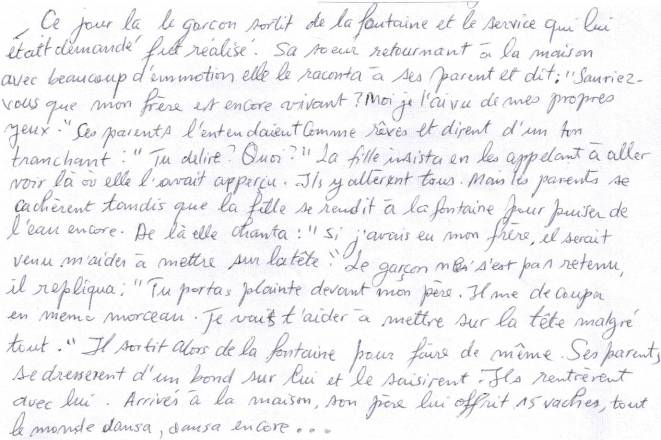 Ce jour la le garçon sortit de la fontaine et le service qui lui
étatt demandé fut réalisé. Sa soeur retournant à la maison
avec beaucoup d'emmotion elle le raconta à ses parent et dit : "Sauriez-
vous que mon frère est encore vivant ? Moi je l'ai vu de mes propres
yeux." Ses parents l'entendaient comme rêves et dirent d'un ton
tranchant : "Tu delire ? Quoi ?" La fille insista en les appelant à aller
voir là où elle l'avait apperçu. Ils y allèrent tous. Mais les parents se
cachèrent tandis que la fille se rendit à la fontaine pour puiser de
l'eau encore. De là elle chanta : "Si j'avais eu mon frère, il serait
venu m'aider à mettre sur la tête." Le garçon s'est pas retenu,
il repliqua : "Tu portas plainte devant mon père. Il me decoupa
en meme morceau. Je vais t'aider à mettre sur la tête malgré
tout." Il sortit alors de la fontaine pour faire de même. Ses parents
se dresserent d'un bond sur lui et le saisirent. Ils rentrèrent
avec lui. Arrivés à la maison, son père lui offrit 15 vaches, tout
le monde dansa, dansa encore...